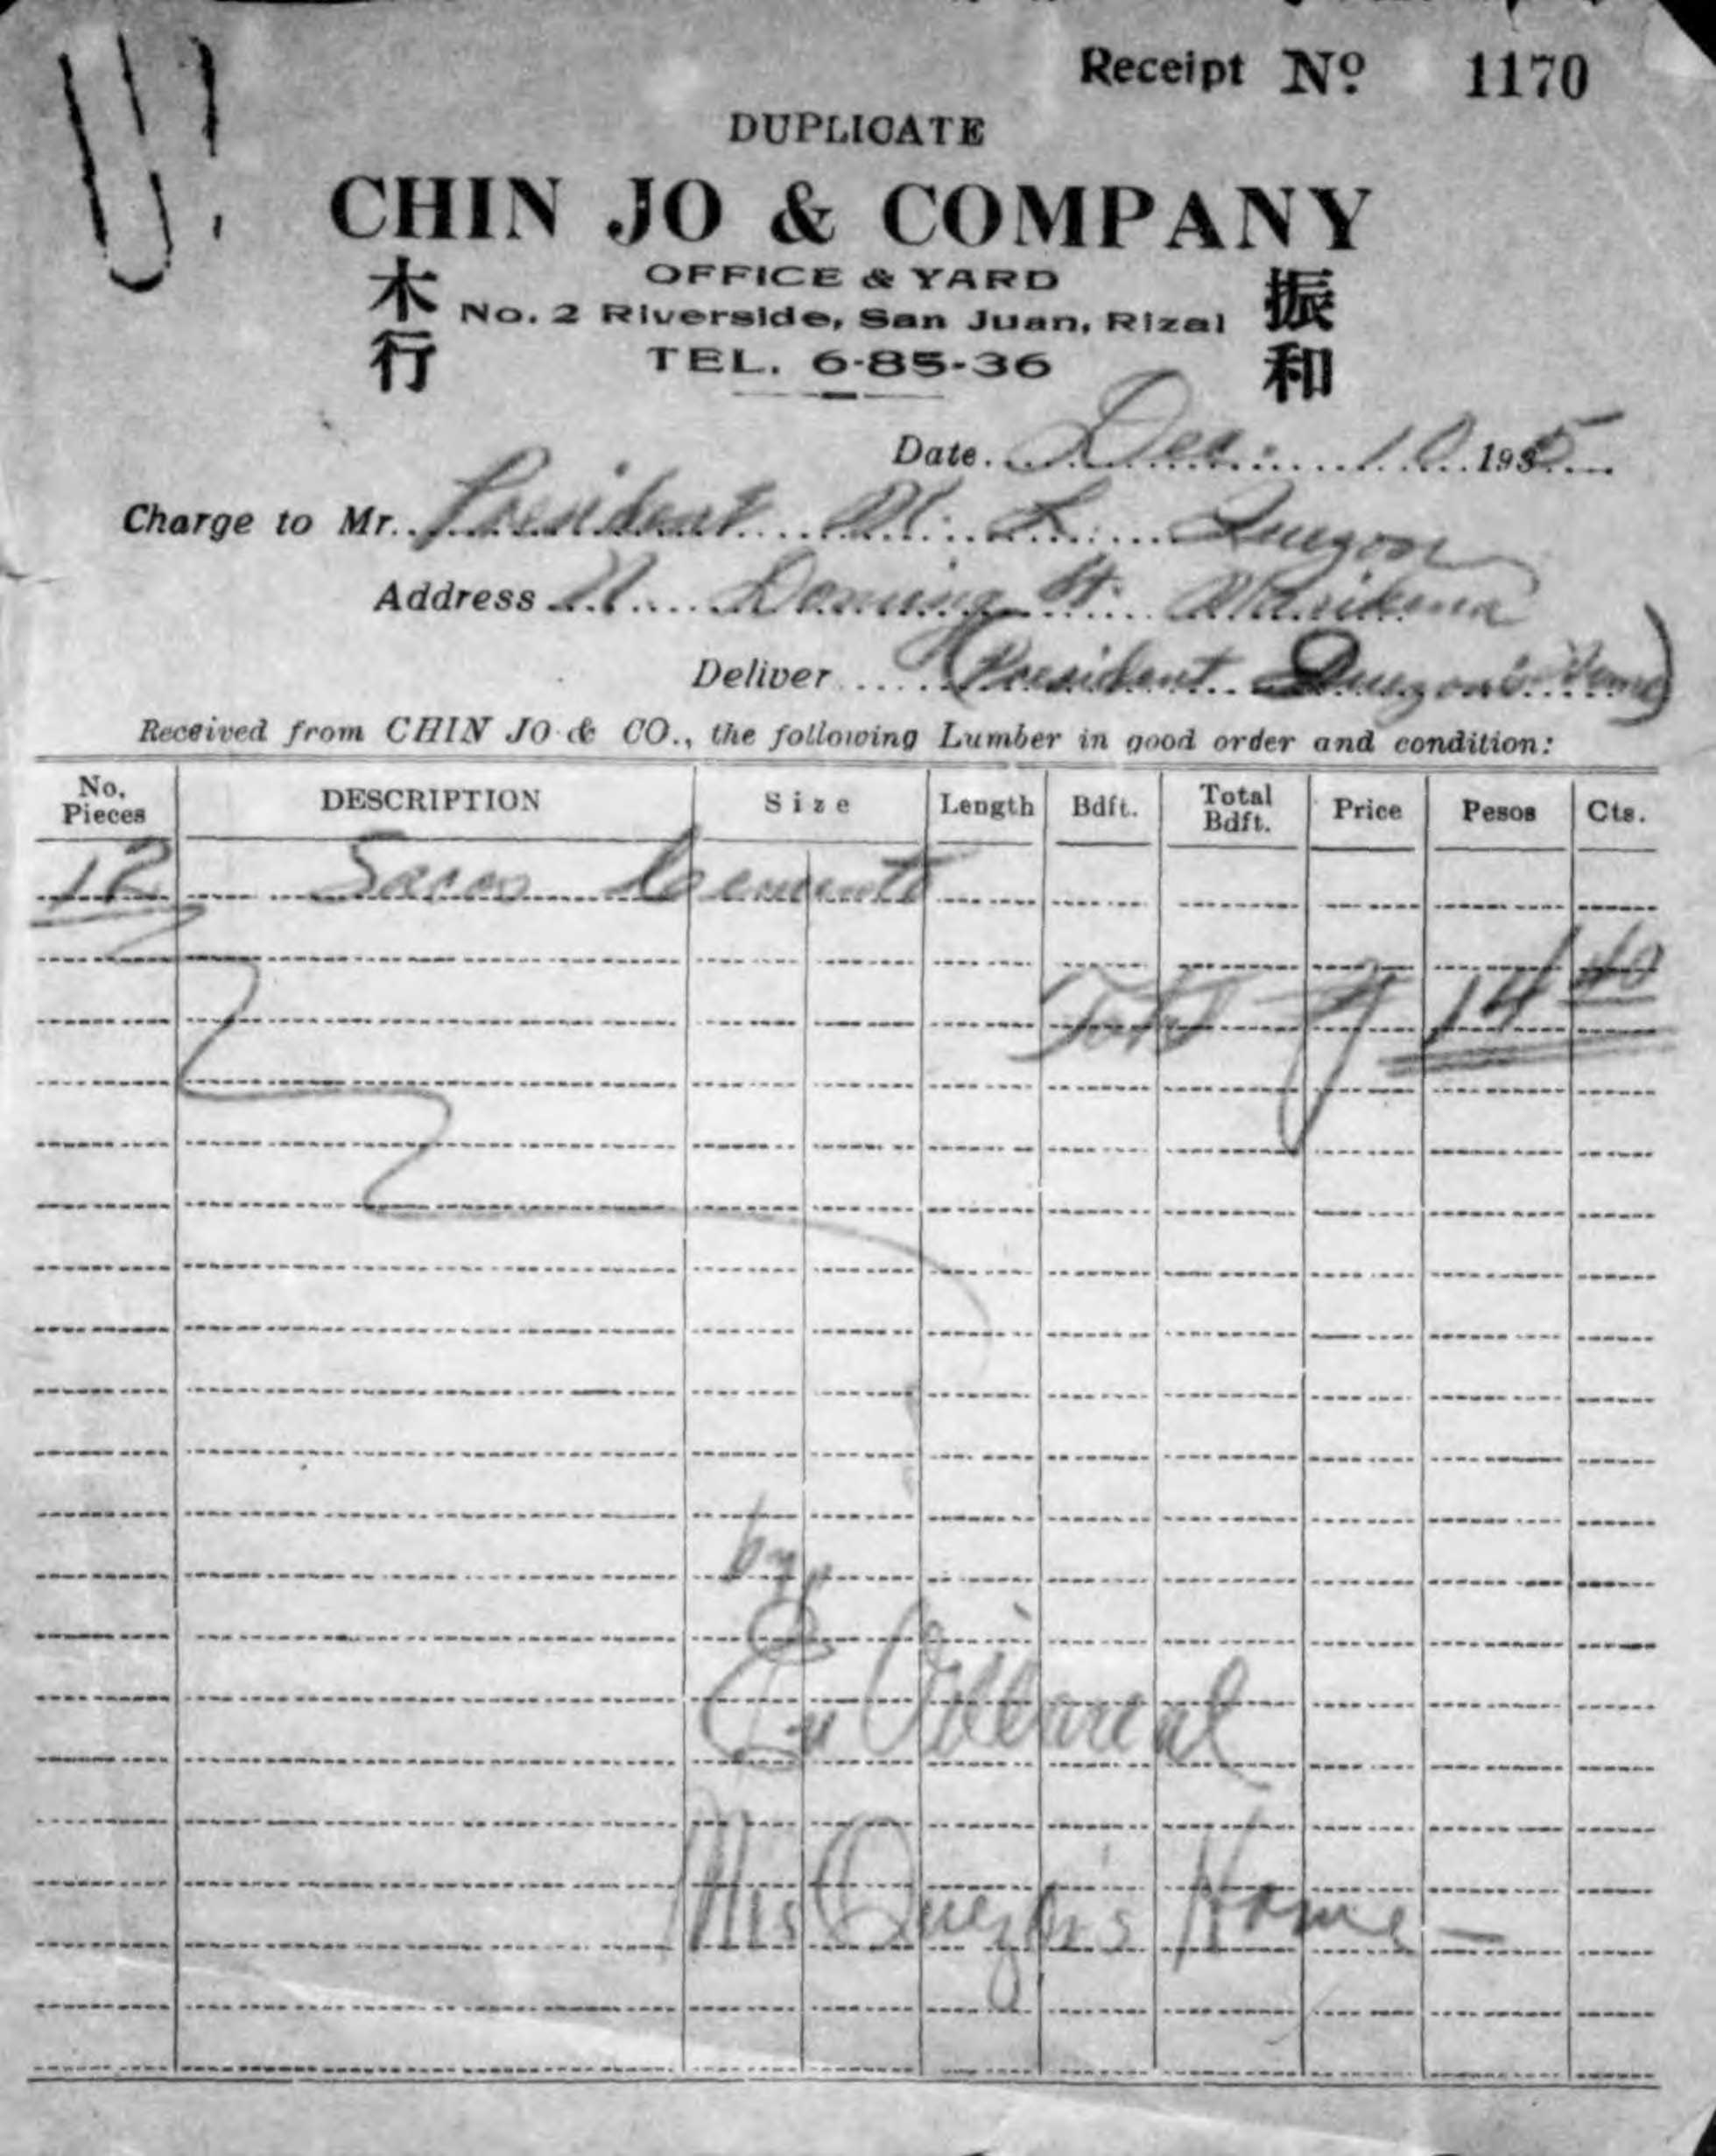 Receipt Nº 1170
DUPLICATE
CHIN JO & COMPANY
木行
OFFICE & YARD
No. 2 Riverside, San Juan, Rizal
TEL. 6-85-36
振和
Date. Dec. 10 1935
Charge to Mr. President M. L. Quezon
Address N. Domingo St. Marikina
Deliver (President Quezon's Home)
Received from CHIN JO & CO., the following Lumber in good order and condition:
No. Pieces DESCRIPTION Size Length Bdft. Total Bdft. Price Pesos Cts.
12 Sacos Cemento
Total ₱ 14 40
by
Villareal
Mrs Quezon's Home